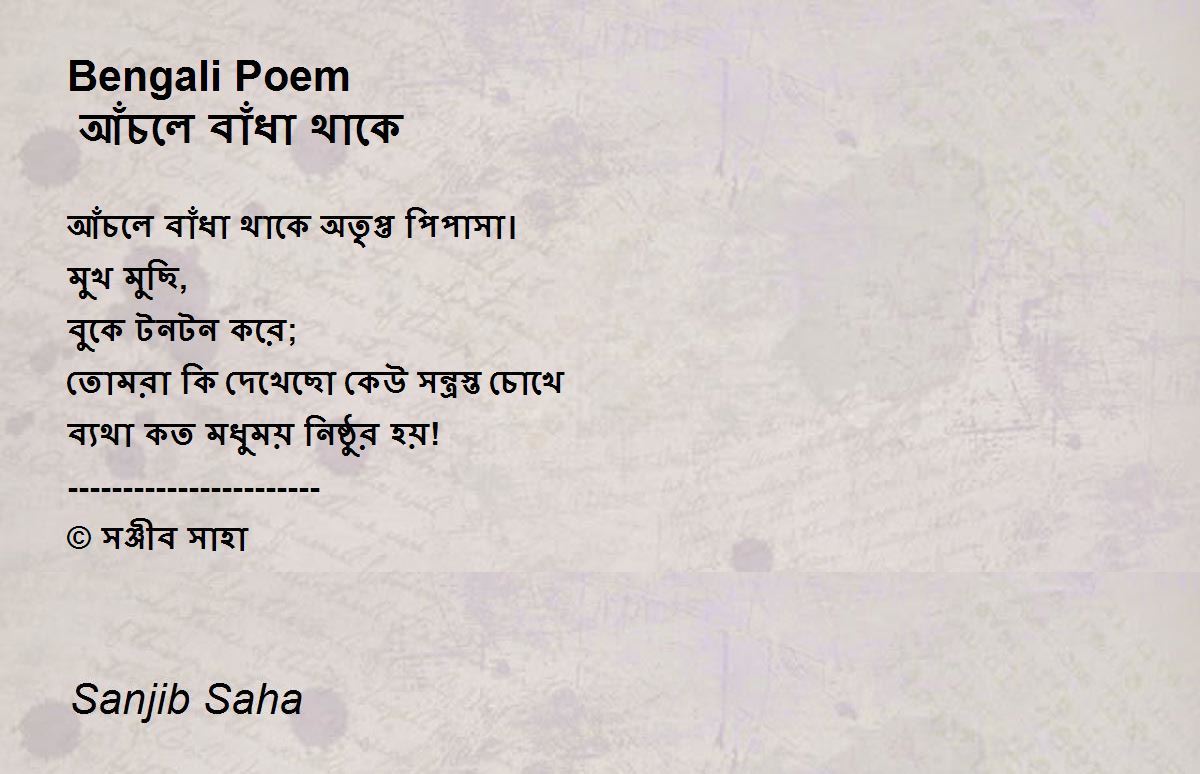 Bengali Poem
আঁচলে বাঁধা থাকে
আঁচলে বাঁধা থাকে অতৃপ্ত পিপাসা।
মুখ মুছি,
বুকে টনটন করে;
তোমরা কি দেখেছো কেউ সন্ত্রস্ত চোখে
ব্যথা কত মধুময় নিষ্ঠুর হয়!
-----------------------
© সঞ্জীব সাহা
Sanjib Saha